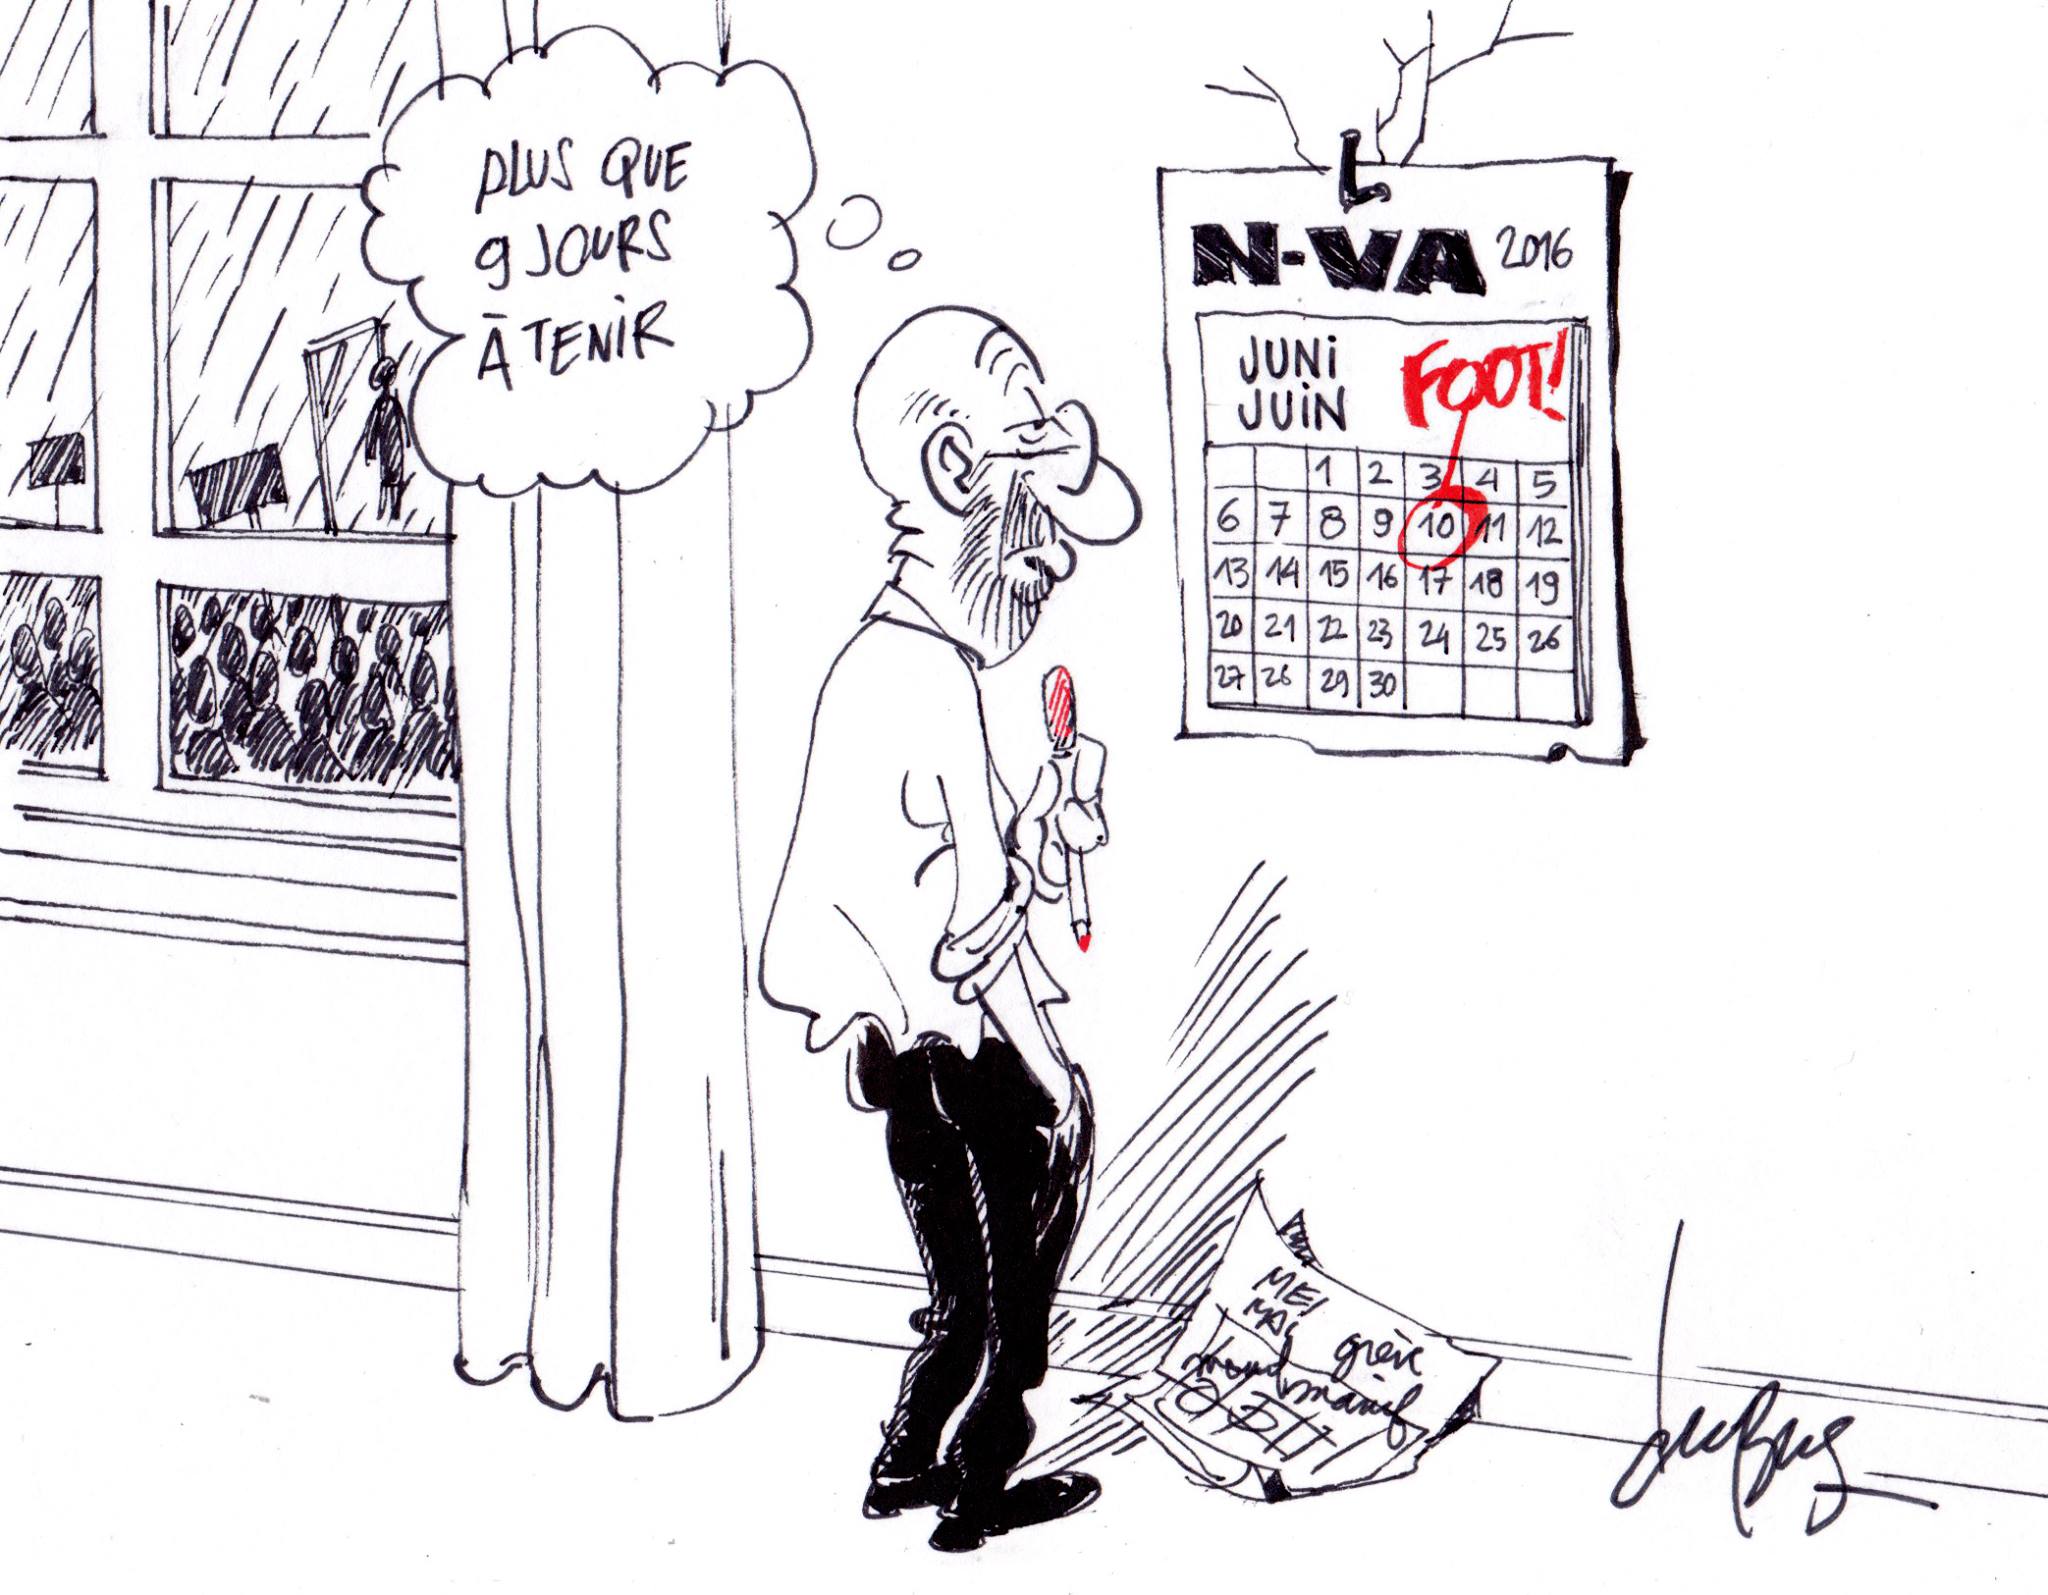 PLUS QUE
9 JOURS
À TENIR
N-VA 2016
JUNI
JUIN
FOOT!
1 2 3 4 5
6 7 8 9 10 11 12
13 14 15 16 17 18 19
20 21 22 23 24 25 26
27 28 29 30
MEI
MAI
grève